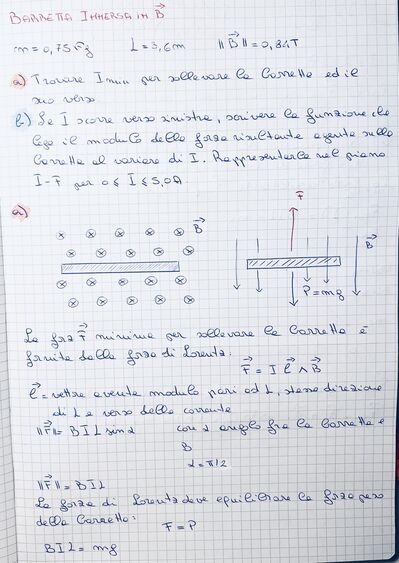 BARRETTA IMMERSA IN B
m = 0,75 kg L = 3,6m ||B|| = 0,84T
a) Trovare Imin per sollevare la barretta ed il
suo verso
b) Se I scorre verso sinistra, scrivere la funzione che
lega il modulo della forza risultante agente sulla
barretta al variare di I. Rappresentarla nel piano
I-F per 0 ≤ I ≤ 5,0A
a)
B
F
B
P = mg
La forza F minima per sollevare la barretta è
fornita dalla forza di Lorentz:
F = I l ∧ B
l = vettore avente modulo pari ad L, stessa direzione
di L e verso della corrente
||F|| = BIL sin α con α angolo fra la barretta e
B
α = π/2
||F|| = BIL
La forza di Lorentz deve equilibrare la forza peso
della barretta:
F = P
BIL = mg